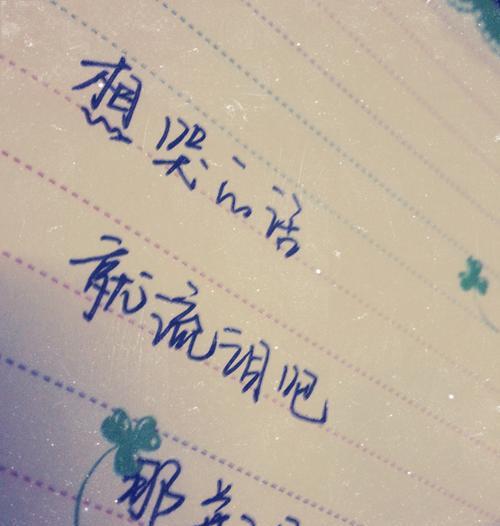 想哭的话
就流泪吧
那